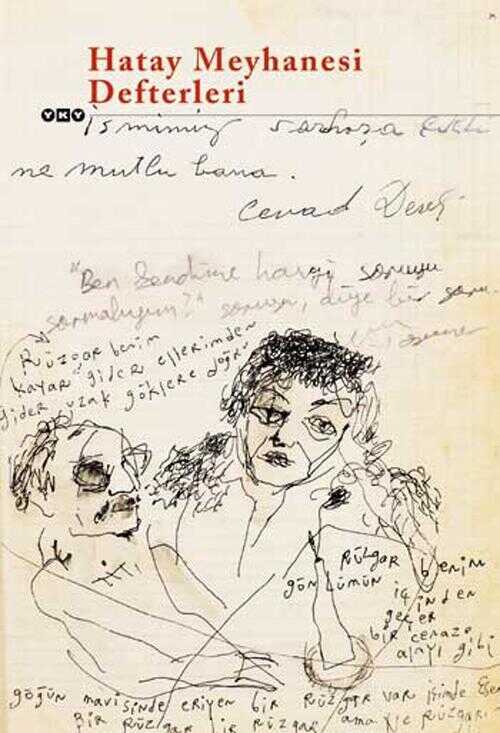 Hatay Meyhanesi
Defterleri
YKY
İsmimiz sarhoşa
ne mutlu bana.
Cevad
"Ben kendime hangi soruyu
sormalıyım?" sorusu, diye bir soru
Rüzgar benim
kayar gider ellerimden
gider uzak göklere doğru
Rüzgar benim
gönlümün içinden
geçer
bir cenaze
alayı gibi
göğün mavisinde eriyen bir rüzgar var içimde
Bir rüzgar rüzgar ama ne rüzgar